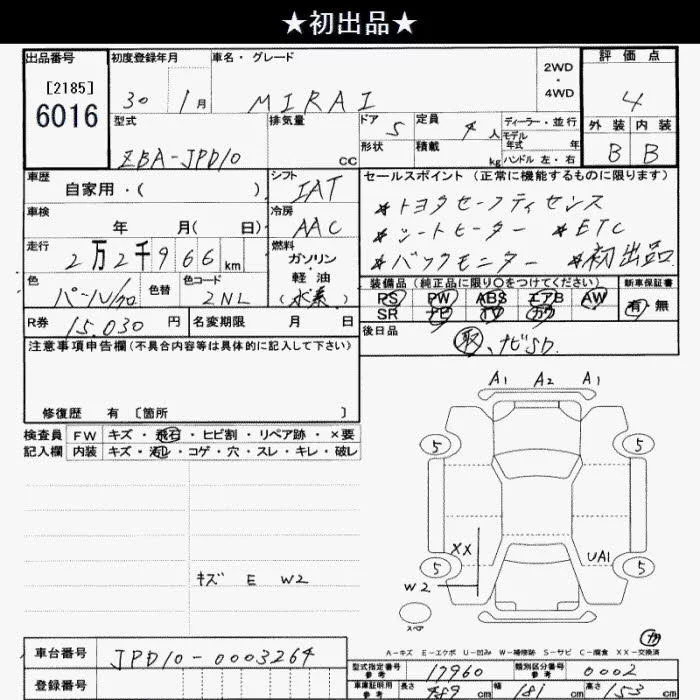 ★初出品★
出品番号
[2185]
6016
初度登録年月
30 1月
車名・グレード
MIRAI
2WD
・
4WD
評価点
4
外装 内装
B B
型式
ZBA-JPD10
排気量
CC
ドア 5
形状
定員 4 人
積載 kg
ディーラー・並行
モデル年式 年
ハンドル 左・右
車歴
自家用・( )
シフト
IAT
車検
年 月( 日)
冷房
AAC
走行
2万2千966km
燃料
ガソリン
・
軽油
(水素)
色
パール/クロ
色替
色コード
2NL
R券 15,030 円
名変期限 月 日
セールスポイント(正常に機能するものに限ります)
*トヨタセーフティセンス
*シートヒーター *ETC
*バックモニター *初出品
装備品(純正品に限り○をつけてください)
PS PW ABS エアB AW
SR ナビ TV カワ
新車保証書
有・無
後日品
取、ナビSD.
注意事項申告欄(不具合内容等は具体的に記入して下さい)
修復歴 有〔箇所 〕
検査員
記入欄
FW キズ・飛石・ヒビ割・リペア跡・×要
内装 キズ・汚れ・コゲ・穴・スレ・キレ・破レ
キズ E W2
A1 A2 A1
5 5
XX
UA1
5 5
W2
スペア
A-キズ E-エクボ U-凹み W-補修跡 S-サビ C-腐食 XX-交換済
車台番号 JPD10-0003264
登録番号
型式指定番号
参考
17960
類別区分番号
参考
0002
車庫証明用
参考
長さ 489 cm 幅 181 cm 高さ 153 cm